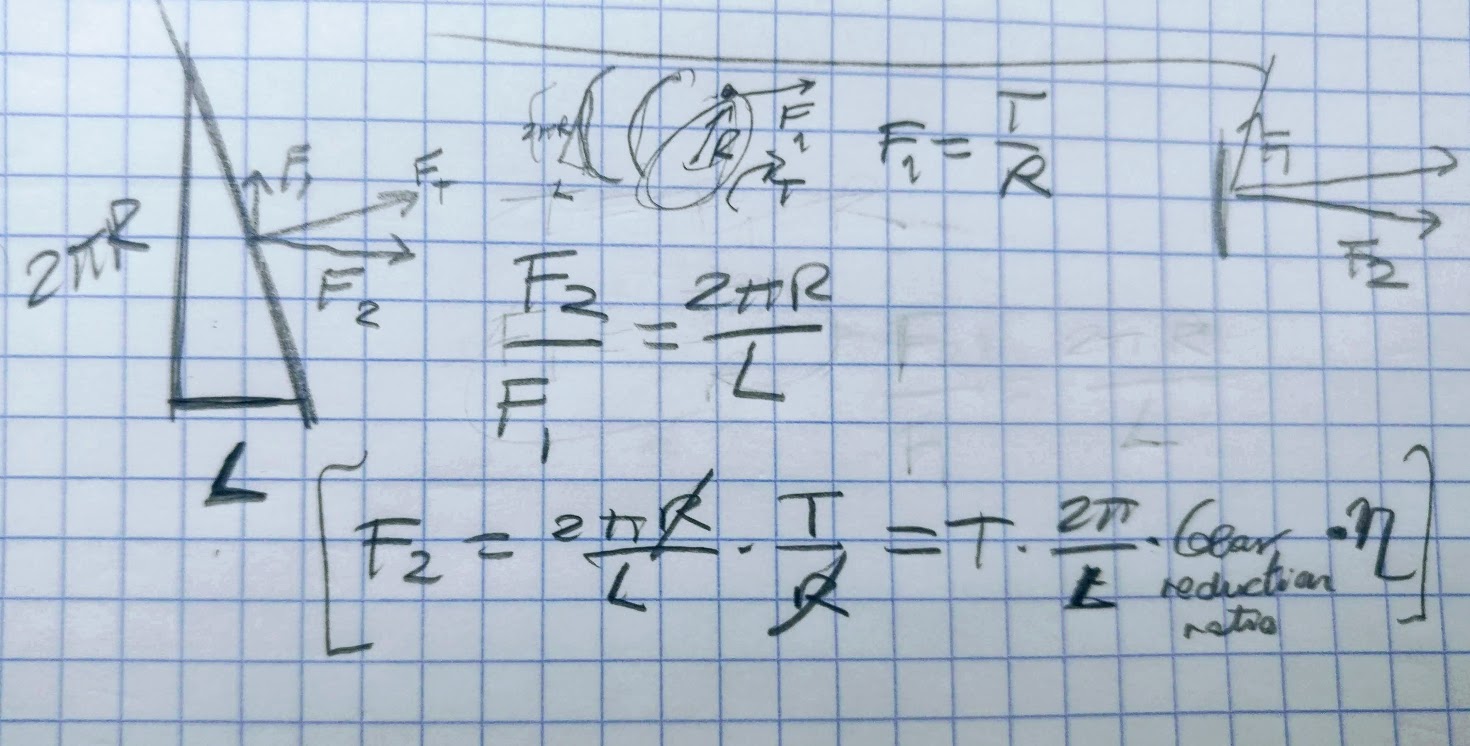 2πR
L
F₁
F_T
F₂
R
F₁
T
F₁ = T/R
F₁
F₂
F₂/F₁ = 2πR/L
F₂ = 2πR/L · T/R = T · 2π/L · Gear reduction ratio · η